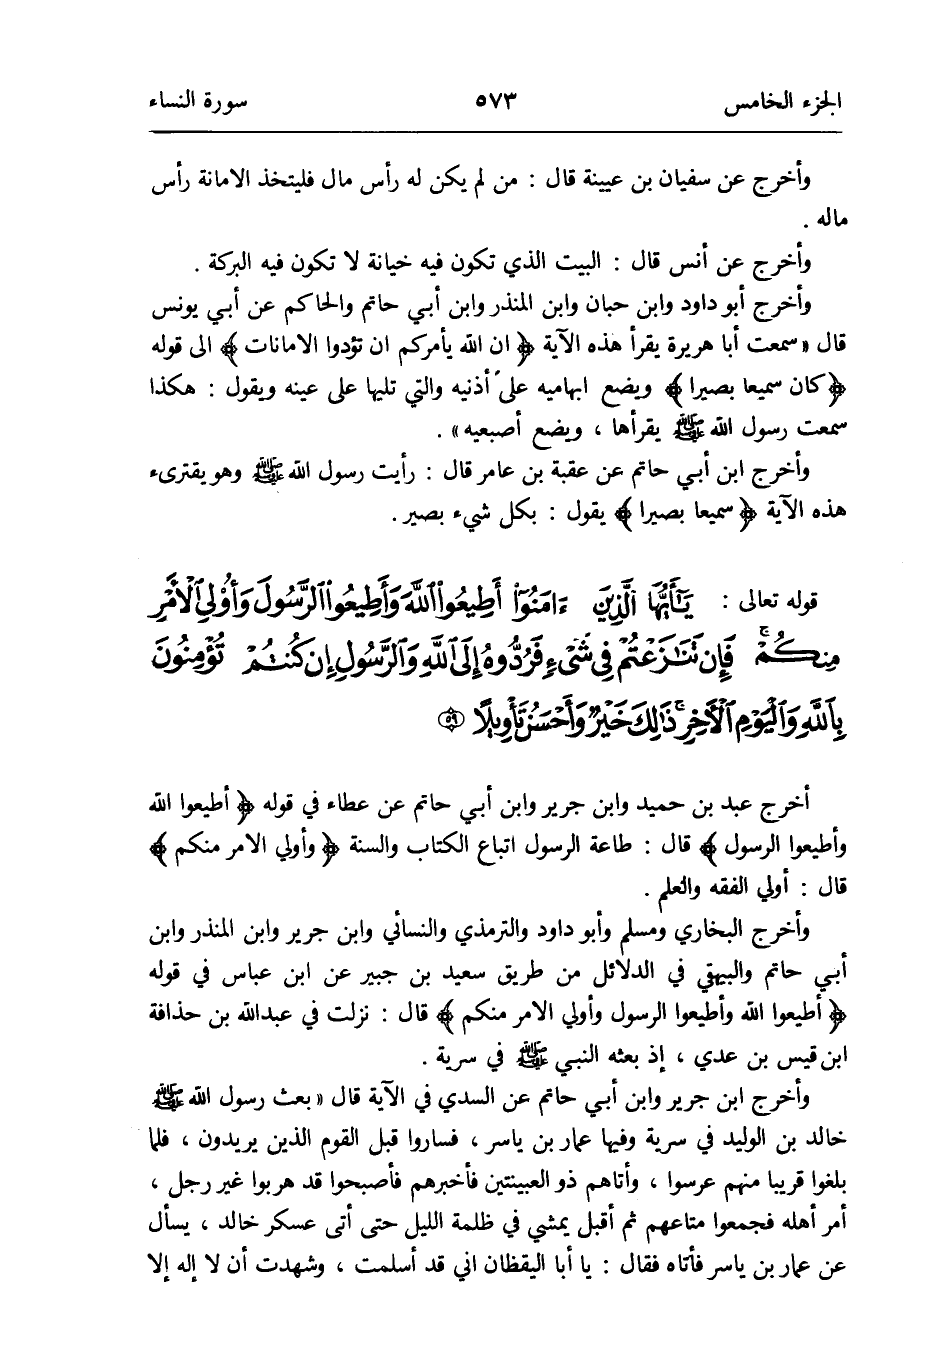 الجزء الخامس ٥٧٣ سورة النساء
وأخرج عن سفيان بن عيينة قال : من لم يكن له رأس مال فليتخذ الامانة رأس
ماله .
وأخرج عن أنس قال : البيت الذي تكون فيه خيانة لا تكون فيه البركة .
وأخرج أبو داود وابن حبان وابن المنذر وابن أبي حاتم والحاكم عن أبي يونس
قال «سمعت أبا هريرة يقرأ هذه الآية ﴿ ان الله يأمركم ان تؤدوا الامانات ﴾ الى قوله
﴿ كان سميعا بصيرا ﴾ ويضع ابهاميه على أذنيه والتي تليها على عينه ويقول : هكذا
سمعت رسول الله ﷺ يقرأها ، ويضع أصبعيه» .
وأخرج ابن أبي حاتم عن عقبة بن عامر قال : رأيت رسول الله ﷺ وهو يقترىء
هذه الآية ﴿ سميعا بصيرا ﴾ يقول : بكل شيء بصير .
قوله تعالى : يَٰٓأَيُّهَا ٱلَّذِينَ ءَامَنُوٓا۟ أَطِيعُوا۟ ٱللَّهَ وَأَطِيعُوا۟ ٱلرَّسُولَ وَأُو۟لِى ٱلْأَمْرِ
مِنكُمْ ۖ فَإِن تَنَٰزَعْتُمْ فِى شَىْءٍ فَرُدُّوهُ إِلَى ٱللَّهِ وَٱلرَّسُولِ إِن كُنتُمْ تُؤْمِنُونَ
بِٱللَّهِ وَٱلْيَوْمِ ٱلْأَخِرِ ۚ ذَٰلِكَ خَيْرٌ وَأَحْسَنُ تَأْوِيلًا ٥٩
أخرج عبد بن حميد وابن جرير وابن أبي حاتم عن عطاء في قوله ﴿ أطيعوا الله
وأطيعوا الرسول ﴾ قال : طاعة الرسول اتباع الكتاب والسنة ﴿ وأولي الامر منكم ﴾
قال : أولي الفقه والعلم .
وأخرج البخاري ومسلم وأبو داود والترمذي والنسائي وابن جرير وابن المنذر وابن
أبي حاتم والبيهقي في الدلائل من طريق سعيد بن جبير عن ابن عباس في قوله
﴿ أطيعوا الله وأطيعوا الرسول وأولي الامر منكم ﴾ قال : نزلت في عبدالله بن حذافة
ابن قيس بن عدي ، إذ بعثه النبي ﷺ في سرية .
وأخرج ابن جرير وابن أبي حاتم عن السدي في الآية قال «بعث رسول الله ﷺ
خالد بن الوليد في سرية وفيها عمار بن ياسر ، فساروا قبل القوم الذين يريدون ، فلما
بلغوا قريبا منهم عرسوا ، وأتاهم ذو العبينتين فأخبرهم فأصبحوا قد هربوا غير رجل ،
أمر أهله فجمعوا متاعهم ثم أقبل يمشي في ظلمة الليل حتى أتى عسكر خالد ، يسأل
عن عمار بن ياسر فأتاه فقال : يا أبا اليقظان اني قد أسلمت ، وشهدت أن لا إله إلا